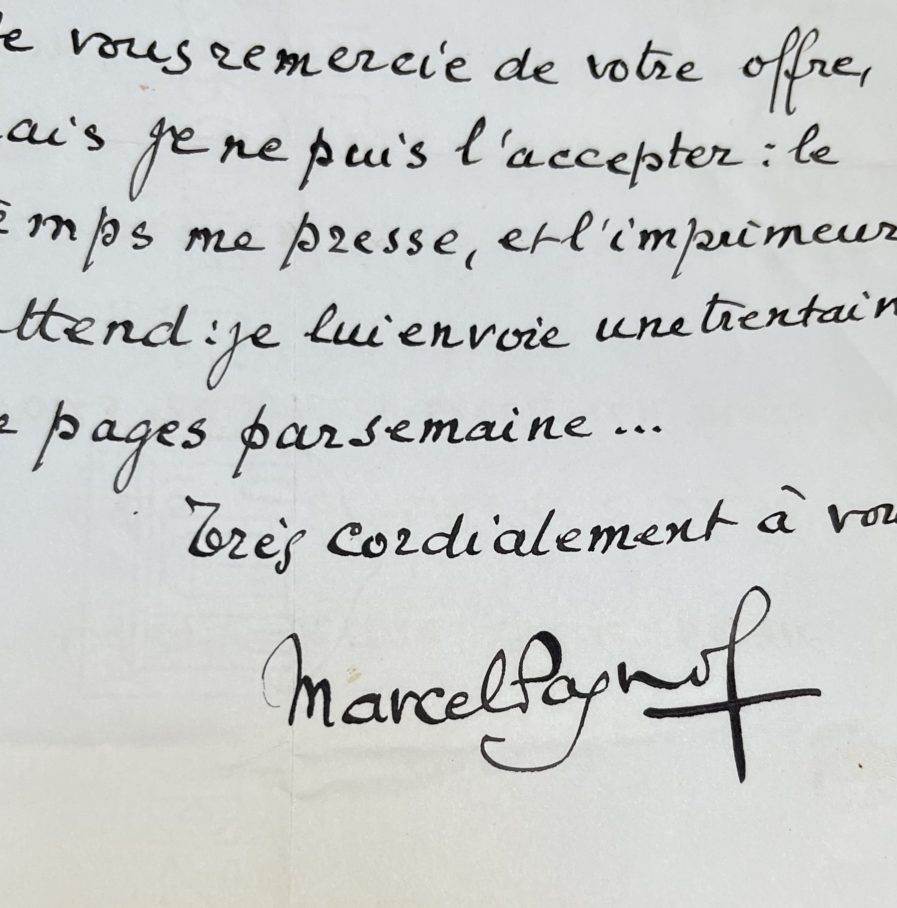 e vous remercie de votre offre,
ais je ne puis l'accepter : le
emps me presse, et l'imprimeur
ttend : je lui envoie une trentain
e pages par semaine ...
Très cordialement à vou
Marcel Pagnol